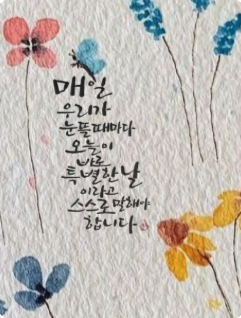 매일
우리가
눈뜰때마다
오늘이
바로
특별한 날
이라고
스스로 말해야
합니다